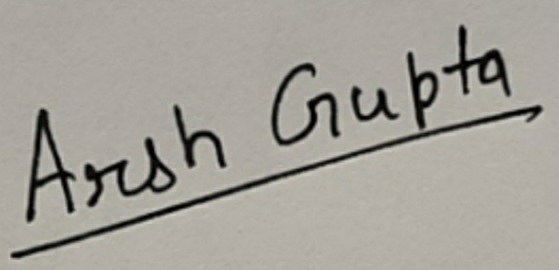 Arsh Gupta